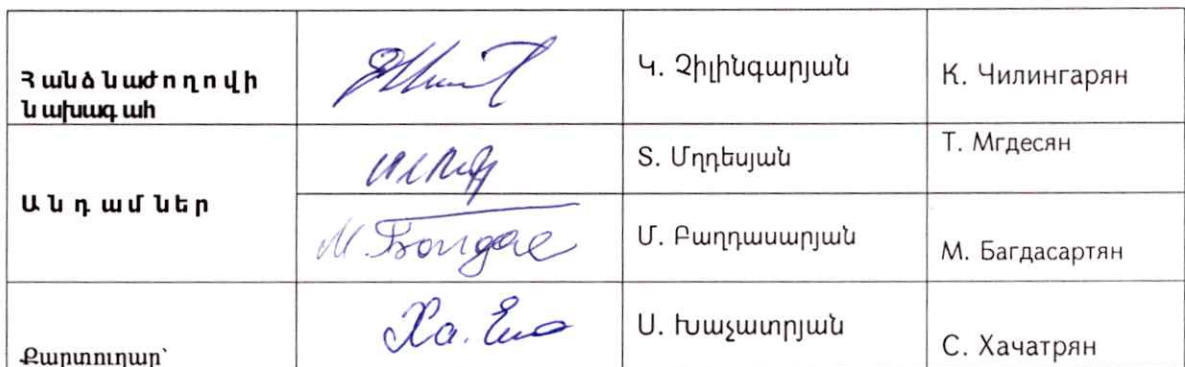 Հանձնաժողովի
նախագահ
Կ. Չիլինգարյան
К. Чилингарян
Անդամներ
Տ. Մղդեսյան
Т. Мгдесян
Մ. Բաղդասարյան
М. Багдасартян
Քարտուղար՝
Ս. Խաչատրյան
С. Хачатрян